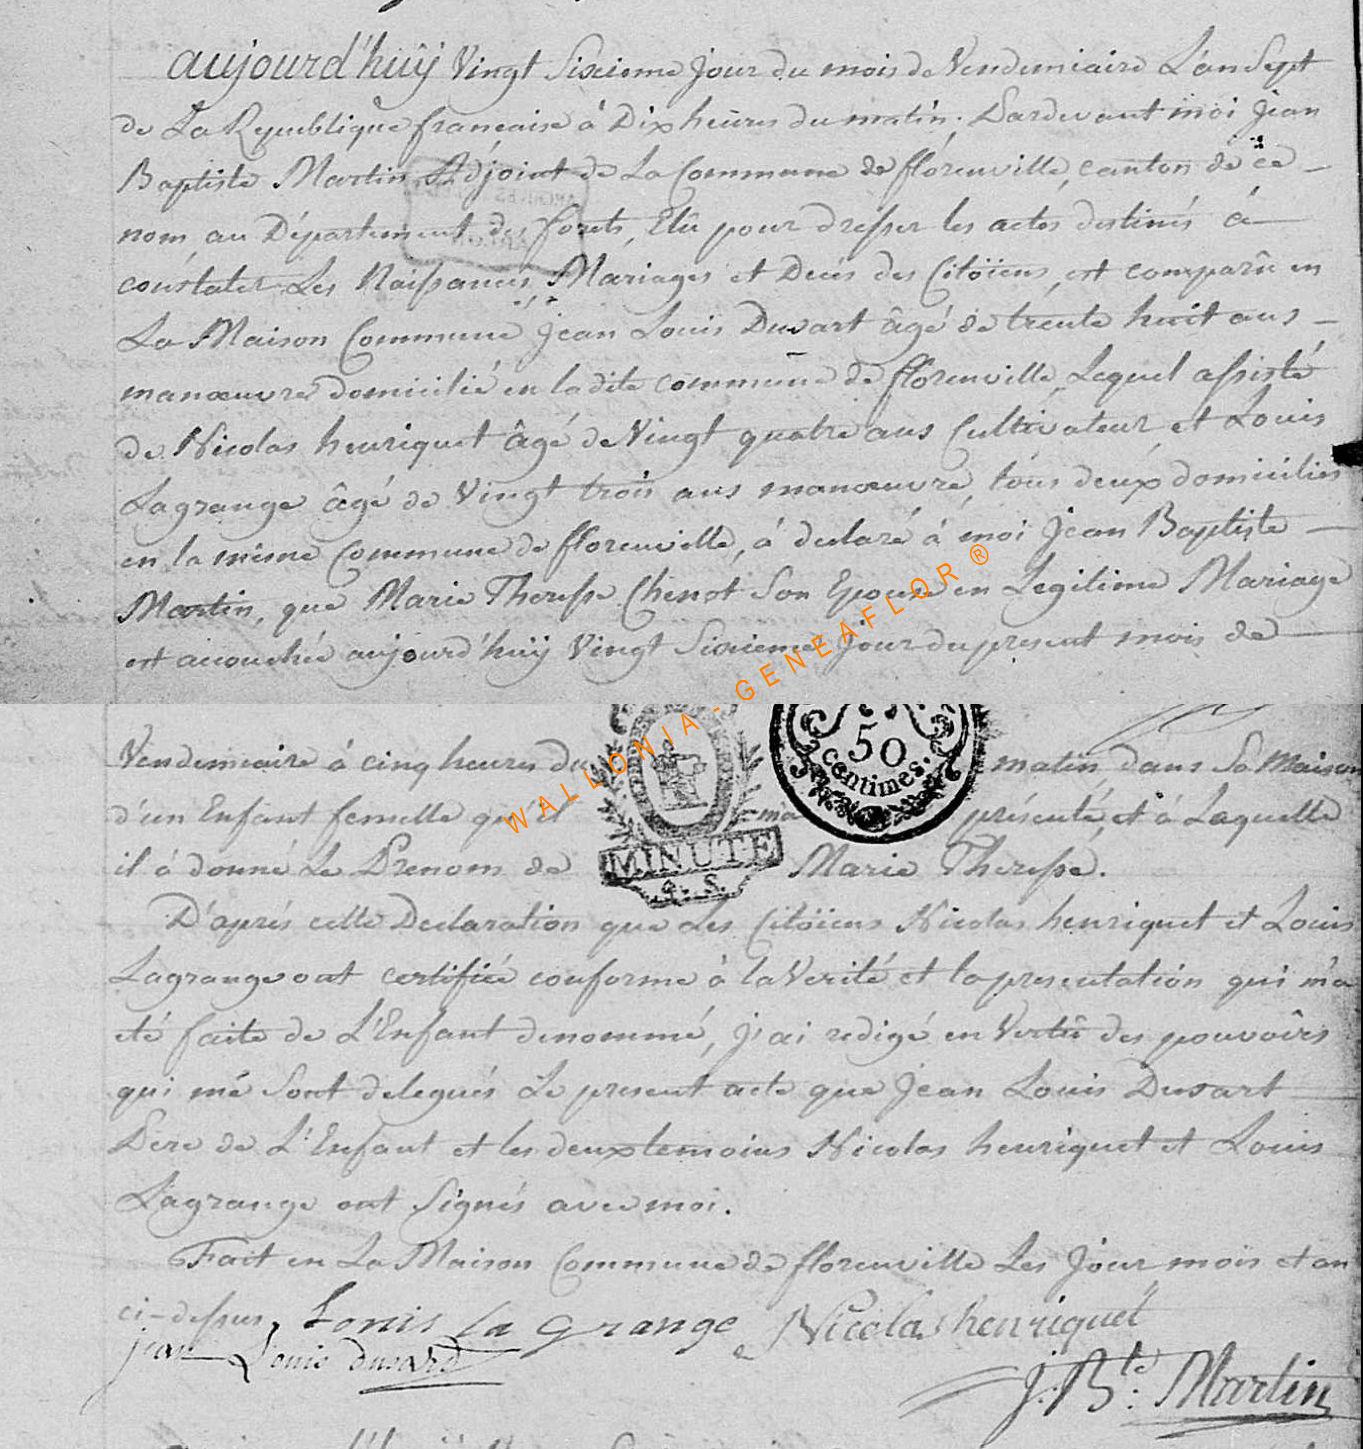 aujourd'hüÿ Vingt Sixieme Jour du mois de Vendemiaire L'an Sept
de La Republique française à Dix heures du matin; Pardevant moi Jean
Baptiste Martin Adjoint de La Commune de florenville, canton de ce
nom au Département des forets, Elû pour dresser les actes destinés á
constater Les Naissances, Mariages et Decés des Citoïens, est comparû en
La Maison Commune Jean Louis Dusart âgé de trente huit ans
manœuvre domicilié en ladite commune de florenville, Lequel assisté
de Nicolas henriquet âgé de Vingt quatre ans Cultivateur et Louis
Lagrange âgé de Vingt trois ans manœuvre, tous deux domiciliés
en la même Commune de florenville, á declaré à moi Jean Baptiste
Martin, que Marie Theresse Chenot Son Epouse en Legitime Mariage
est accouchée aujourd'hüÿ Vingt Sixieme Jour du present mois de
Vendemiaire á cinq heures du matin dans Sa Maison
d'un Enfant femelle qu'il m'a présenté, et á Laquelle
il á donné Le Prenom de Marie Theresse.
50
centimes.
MINUTE
D'aprés cette Declaration que Les Citoïens Nicolas henriquet et Louis
Lagrange ont certifiée conforme à la Verité et la presentation qui m'a
eté faite de L'Enfant denommé, j'ai redigé en Vertû des pouvoirs
qui me Sont delegués Le present acte que Jean Louis Dusart
Pere de L'Enfant et les deux temoins Nicolas henriquet et Louis
Lagrange ont Signés avec moi.
Fait en La Maison Commune de florenville Les Jour mois et an
ci-dessus, Louis la grange Nicolas henriquet
jean Louis dusard
J. Bte: Martin
WALLONIA - GENEAFLOR ®